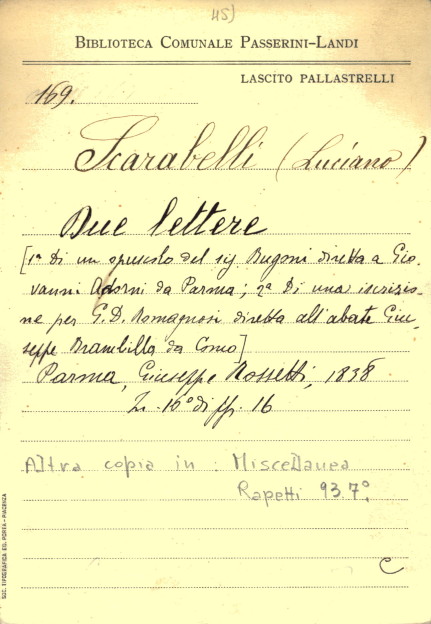 45)
BIBLIOTECA COMUNALE PASSERINI-LANDI
LASCITO PALLASTRELLI
169.
Scarabelli (Luciano)
Due lettere
[1ª Di un opuscolo del sig Bugoni diretta a Gio-
vanni Adorni da Parma; 2ª Di una iscrizio-
ne per G.D. Romagnosi diretta all'abate Giu-
seppe Brambilla da Como]
Parma, Giuseppe Rossetti, 1838
In 16º di pp. 16
Altra copia in: Miscellanea
Rapetti 93.7º.
C
SOC. TIPOGRAFICA ED. PORTA - PIACENZA